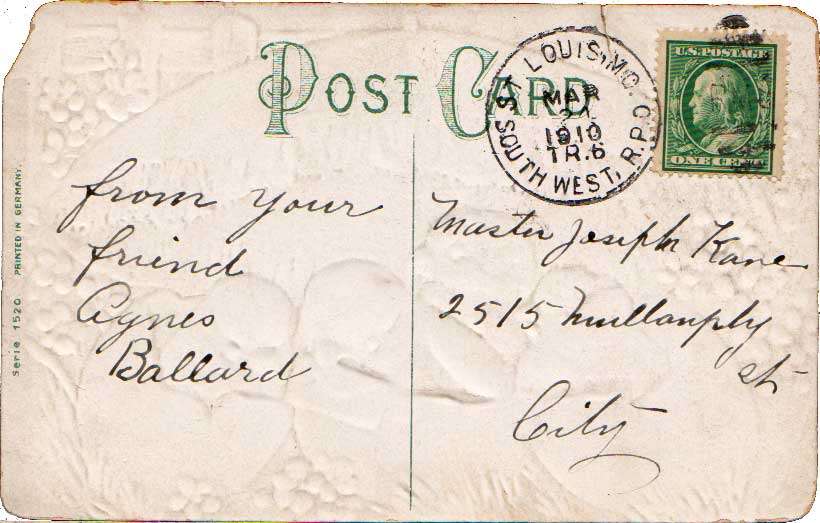 POST CARD
ST. LOUIS, MO.
MAR
1910
TR.6
SOUTH WEST, R.P.O.
U.S. POSTAGE
ONE CENT
from your
friend
Agnes
Ballard
Master Joseph Kane
2515 Mullanphy
st
City
Serie 1520. PRINTED IN GERMANY.